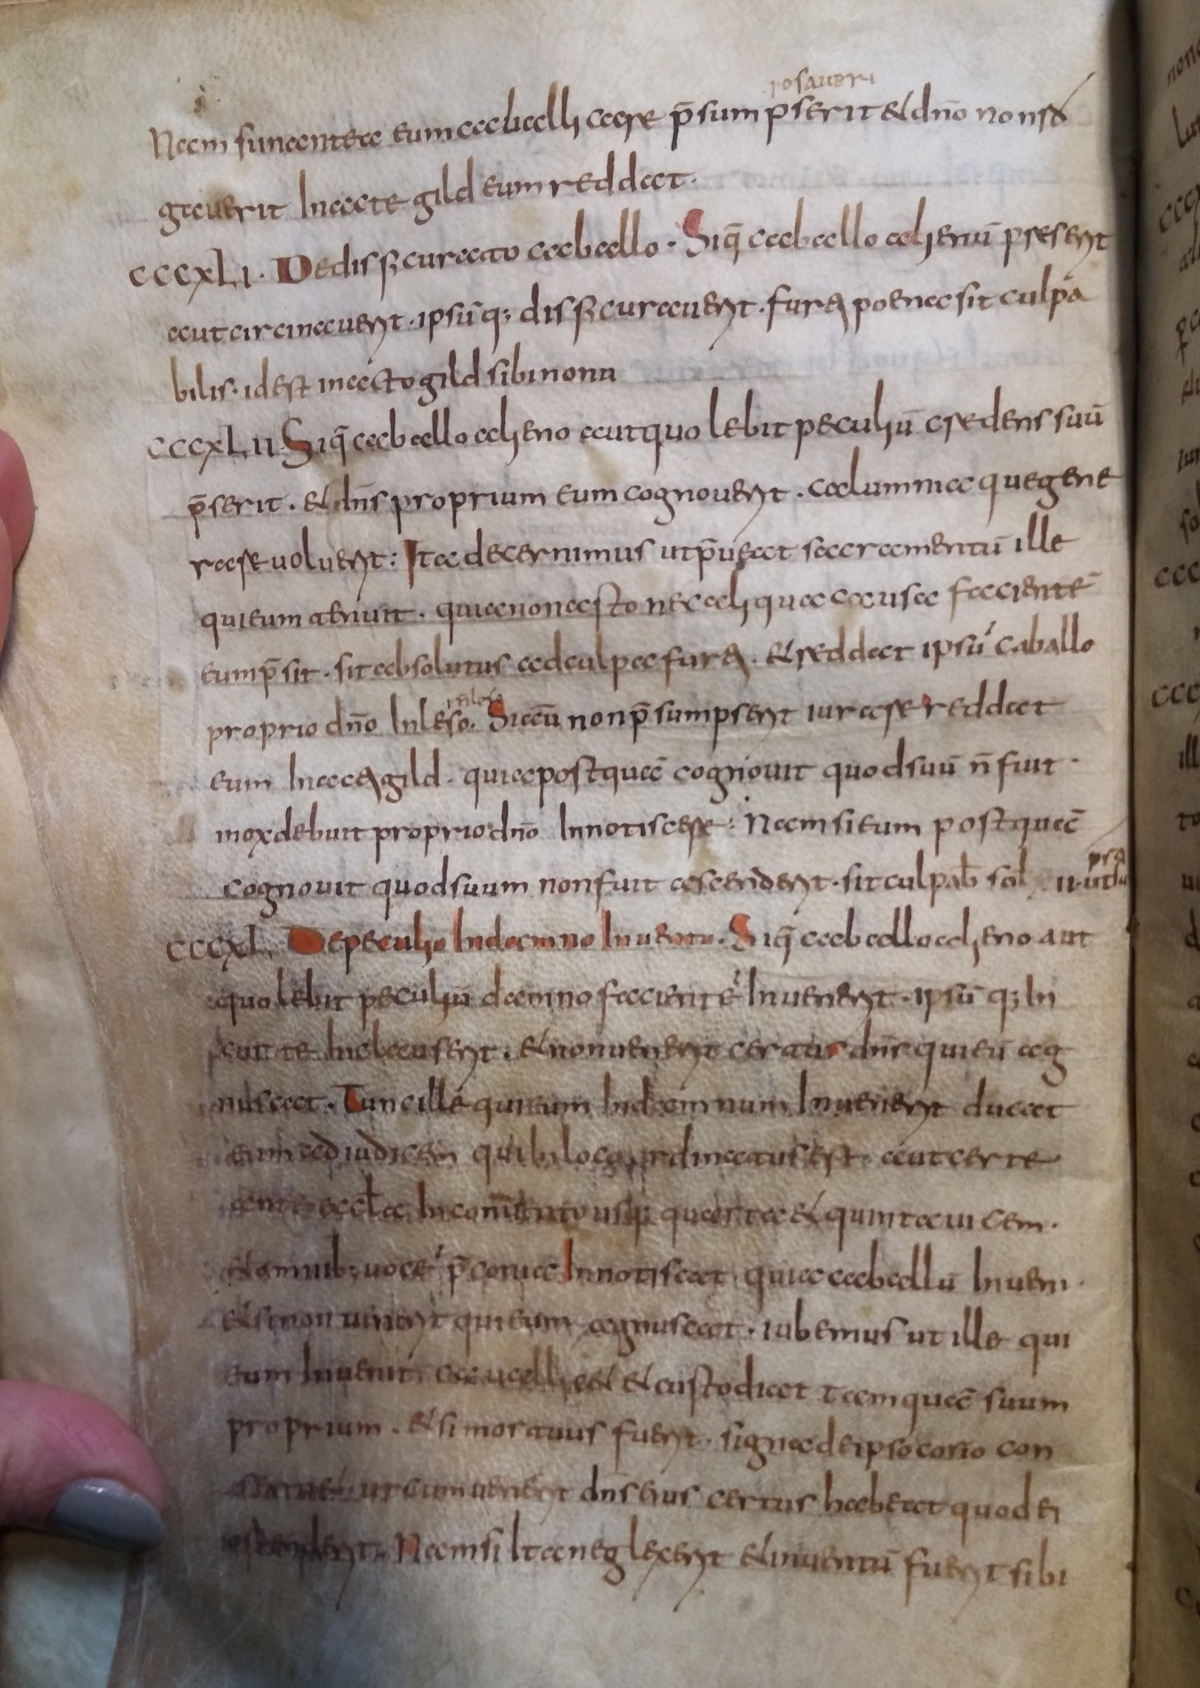 rosaueri
Nam sine antea eum caballicare p̄sumpserit & dnō non si
gauerit In acte gild eum reddat.
CCCXLI. De dispscurato caballo. Siq̄ caballo alienū prese rit
aut circinauerit. ipsūq; dispscurauerit. fure poena sit culpa
bilis. id est in actogild sibi nonu
CCCXLII. Siq̄ caballo alieno aut quolebit peculiū credens suū
p̄serit. & dn̄s proprium eum cognouerit. calumnia que gene
rare uoluerit: Ita decernimus ut p̄ueat sacramentū ille
qui eum tenuit. quia non asto nec aliqua causa faciente
eum p̄sit. sit absolutus ad culpa fure. & reddat ipsū caballo
proprio dnō Inleso. Si cū non p̄sumpserit iurare reddat
eum In acegild. quia postquā cognouit quod suū n̄ fuit.
mox debuit proprio dnō Innotiscere: Nam si eum postquā
cognouit quod suum non fuit ascenderit. sit culpab̄ sol II
CCCXL De peculio In damno Inuento. Siq̄ caballo alieno aut
quolebit peculiū damno faciente Inuenerit. ipsūq; In
curte Inclauserit. & non uenerit certus dn̄s qui eū cog
nuscat. Tunc ille qui eum In damnum Inuenerit ducat
eum ad iudicem qui In loco ordinatus est. aut certe
ante eccl̄a In conuento usq; quarta & quinta uicem.
& omnib; uoce p̄conia Innotiscat quia caballū Inueni.
& si non uenerit qui eum cognuscat. iubemus ut ille qui
eum Inuenit caballic& & custodiat tamquā suum
proprium. & si mortuus fuerit. signa de ipso corio con
seruet. ut cum uenerit dn̄s eius certus habeat quod ei
ostenderit. Nam si Ita neglexerit & inuentū fuerit sibi